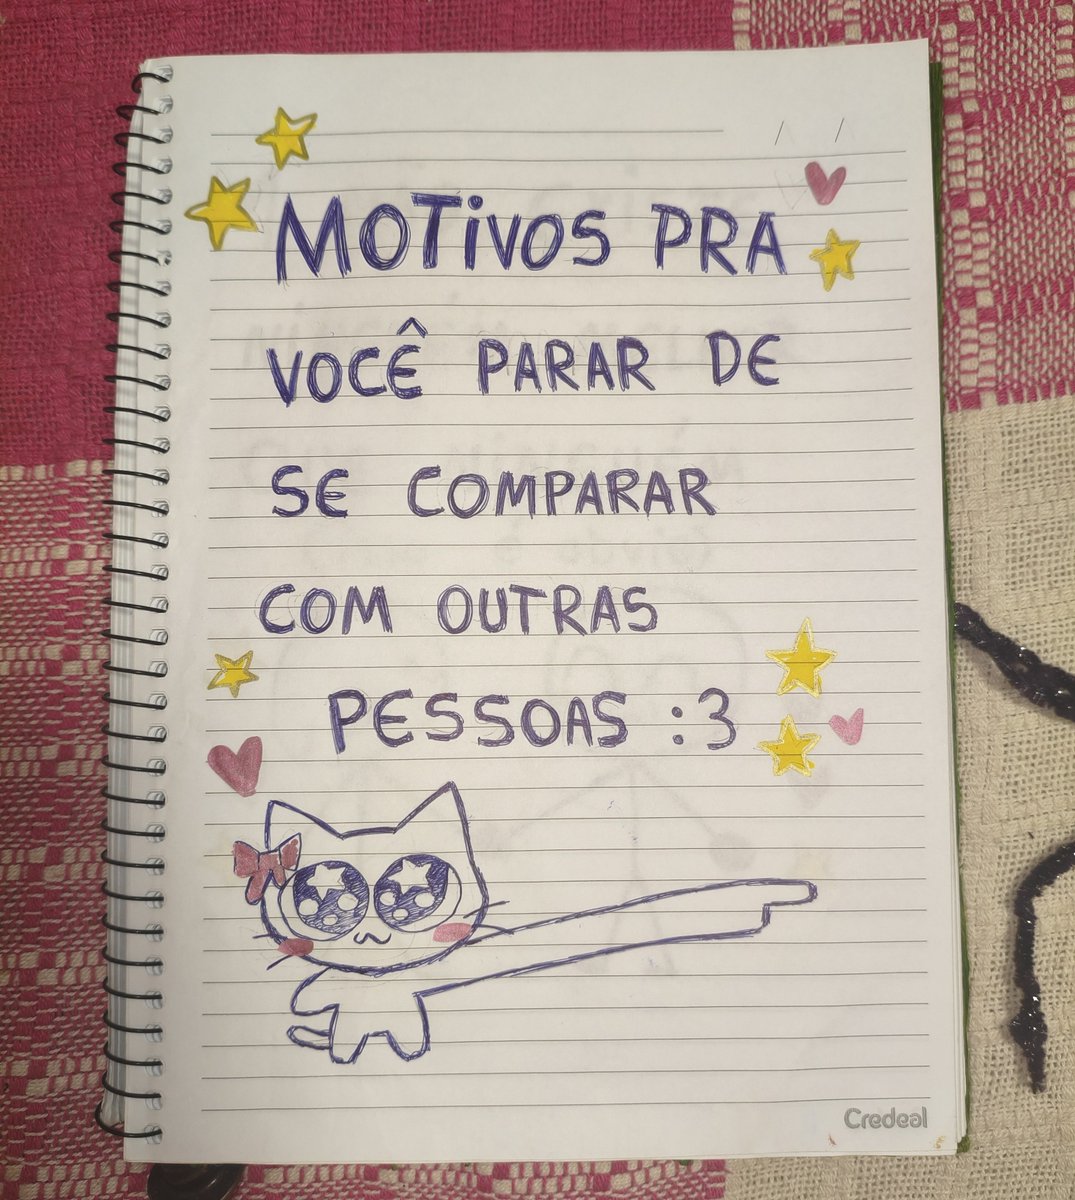 MOTiVOS PRA
VOCÊ PARAR DE
SE COMPARAR
COM OUTRAS
PESSOAS :3
Credeal